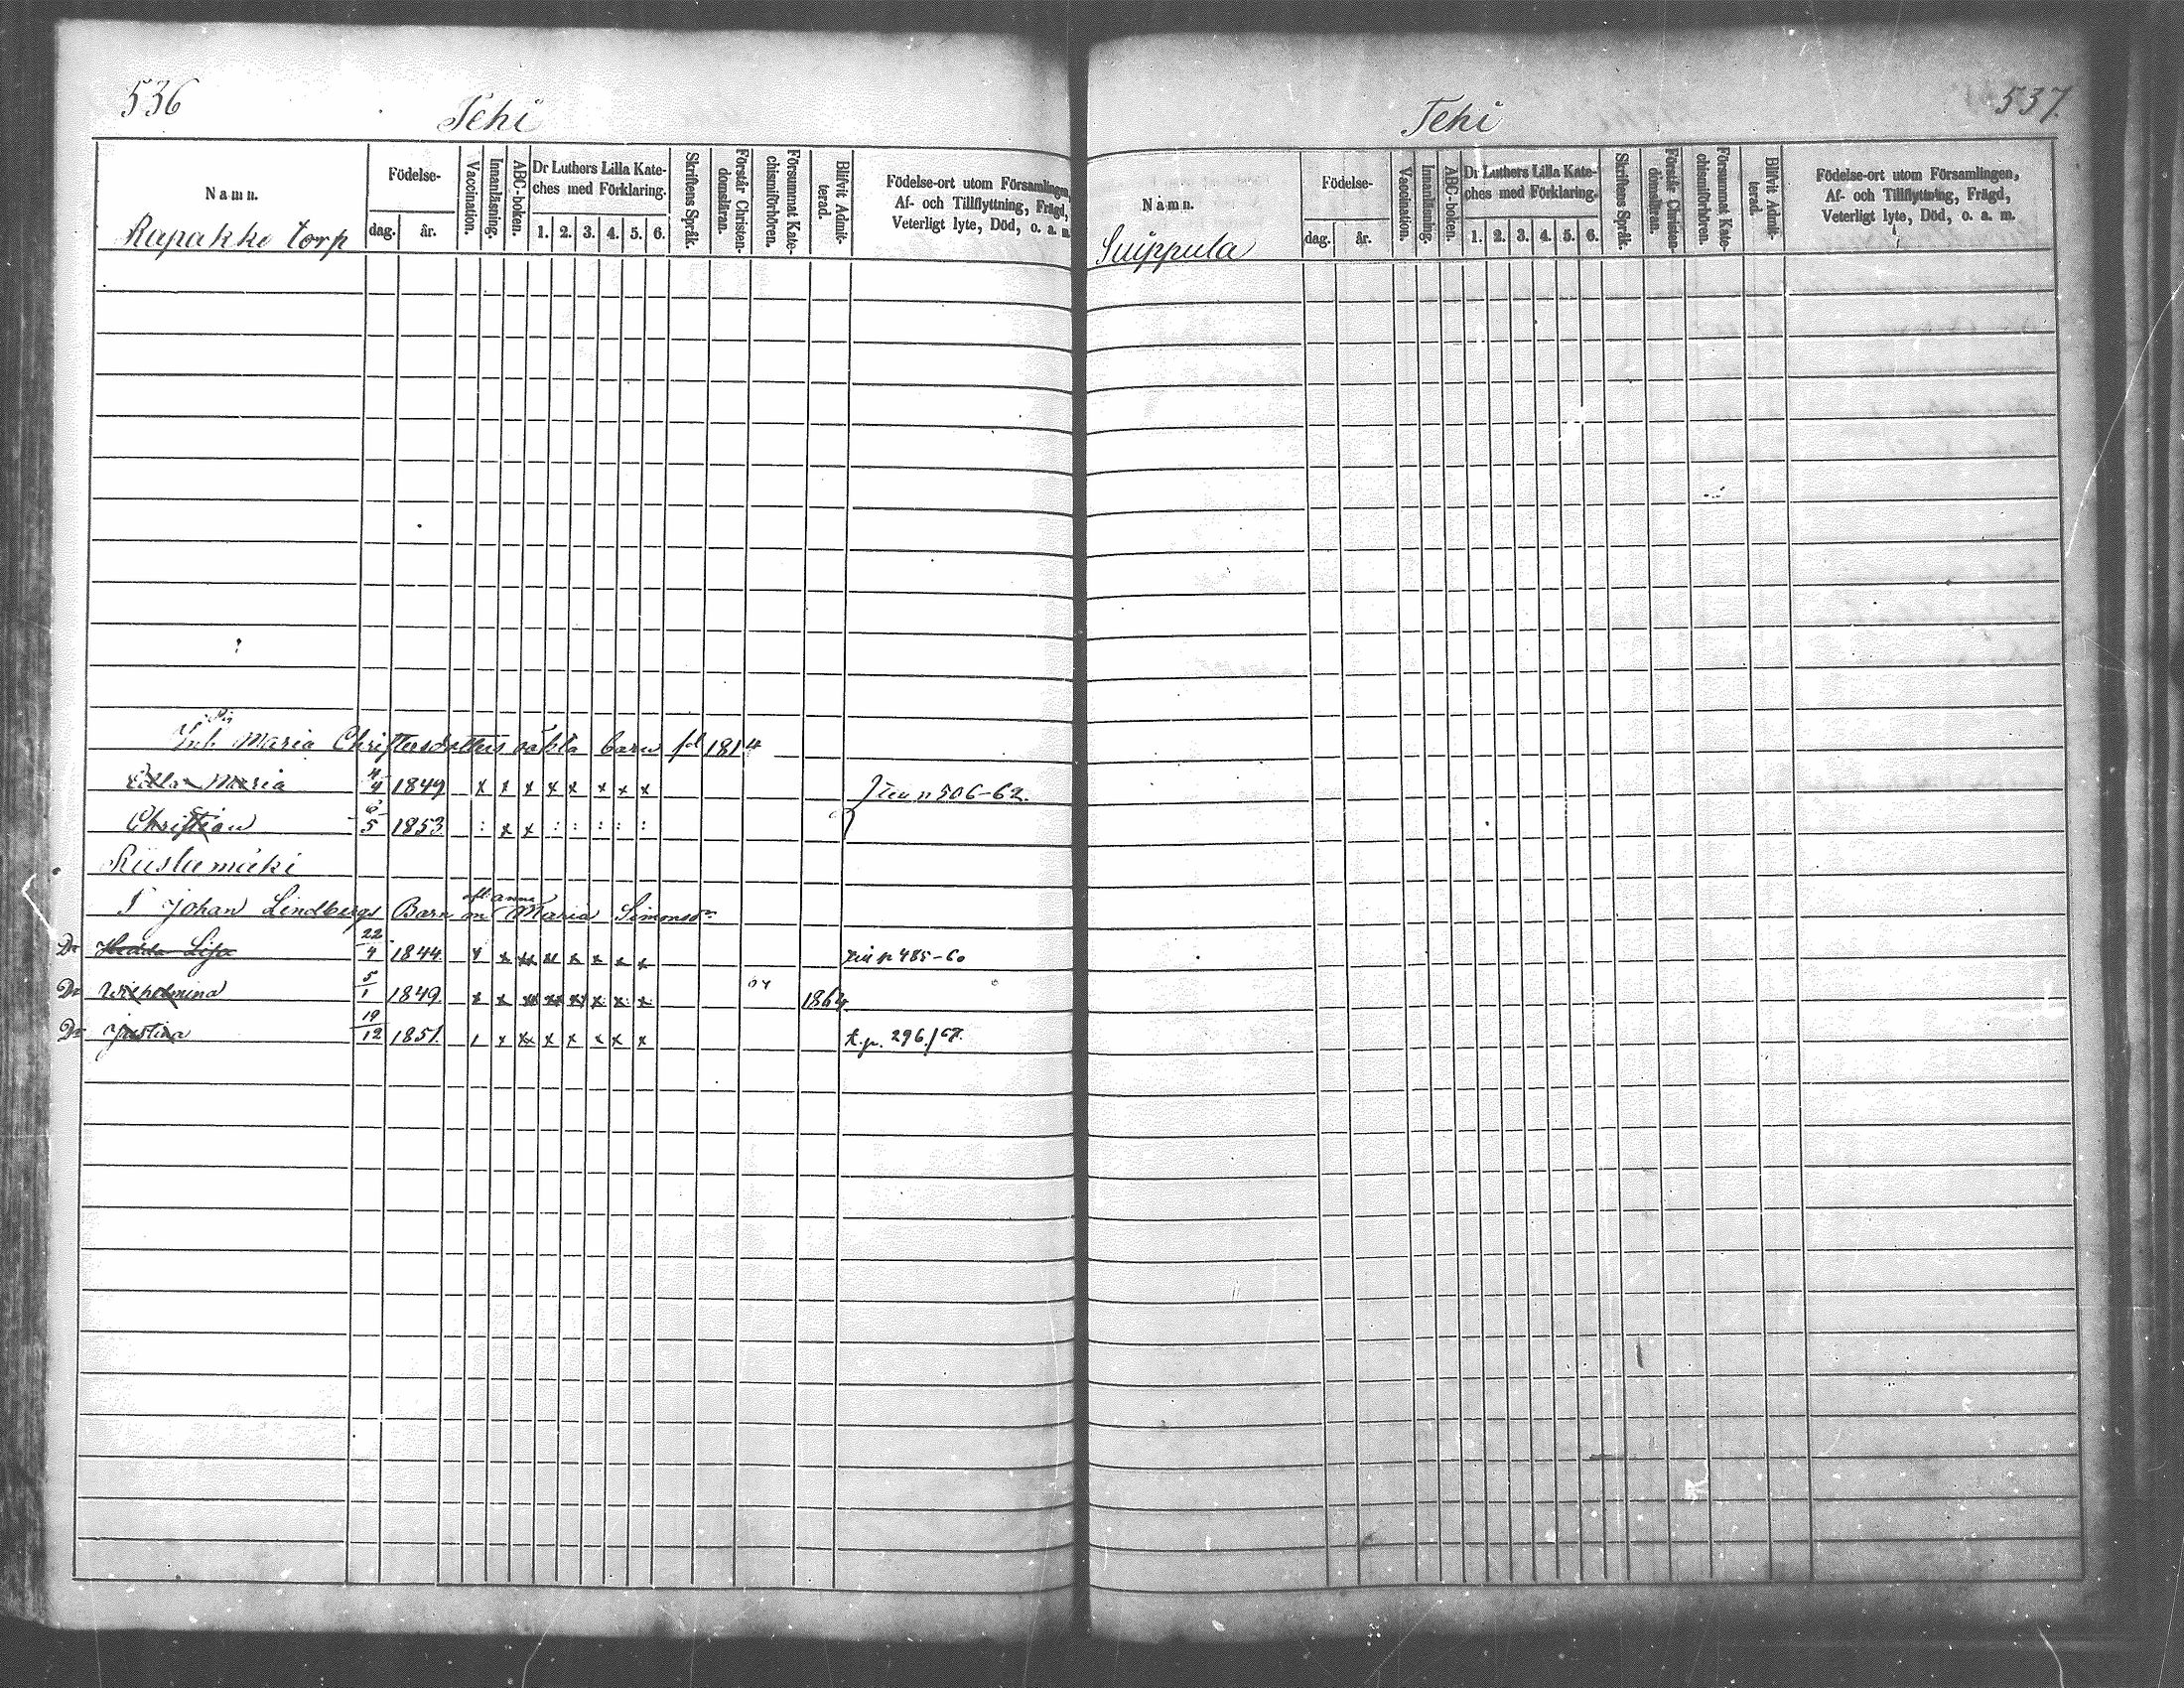 536
Tehi
Namn.
Födelse-
dag. år.
Vaccination.
Innanläsning.
ABC-boken.
Dr Luthers Lilla Kate-
ches med Förklaring.
1. 2. 3. 4. 5. 6.
Skriftens Språk.
Förstår Christen-
domsläran.
Försummat Kate-
chismiförhören.
Blifvit Admit-
terad.
Födelse-ort utom Församlingen,
Af- och Tillflyttning, Frägd,
Veterligt lyte, Död, o. a. m.
Rapakko torp
Maria Christersdotters oäkta barn fd 1814
Ulla Maria 4/4 1849 x x x x x x x x p 506-62.
Christian 6/5 1853 : x x : : : : :
Riistamäki
Johan Lindbergs Barn m Maria Simonsdr
afl anna
Dr Hedda Lisa 22/4 1844 x x xx x x x x x p 485-60
Dr Wilhelmina 5/1 1849 x x xx xx xx x x x 1864
Dr Justina 19/12 1851. x xx x x x x x t.p. 296./67.
537.
Tehi
Namn.
Födelse-
dag. år.
Vaccination.
Innanläsning.
ABC-boken.
Dr Luthers Lilla Kate-
ches med Förklaring.
1. 2. 3. 4. 5. 6.
Skriftens Språk.
Förstår Christen-
domsläran.
Försummat Kate-
chismiförhören.
Blifvit Admit-
terad.
Födelse-ort utom Församlingen,
Af- och Tillflyttning, Frägd,
Veterligt lyte, Död, o. a. m.
Suippula